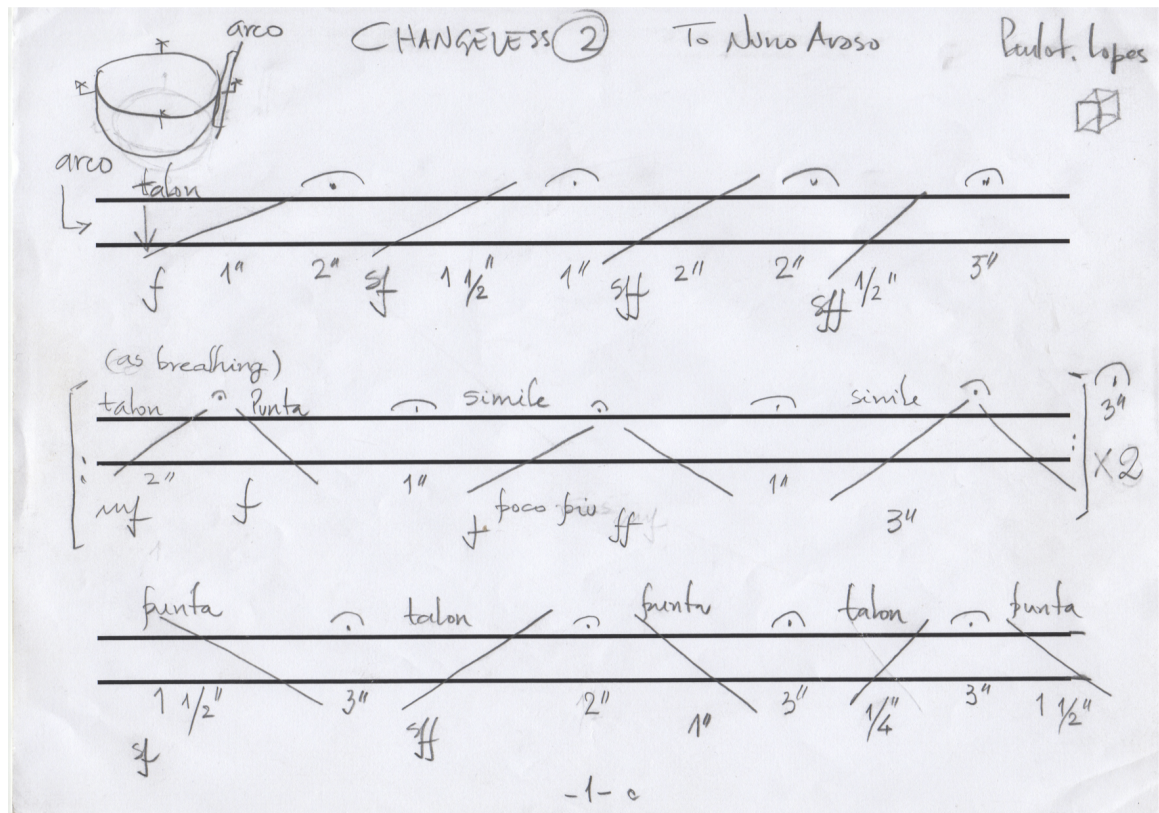 arco CHANGELESS 2 To Nuno Aroso Paulo F. Lopes
arco
talon
f 1" 2" sf 1 1/2" 1" sff 2" 2" sff 1/2" 5"
(as breathing)
talon Punta simile simile 3"
2" 1" 1" x2
mf f f poco più ff 3"
punta talon punta talon punta
1 1/2" 3" sff 2" 1" 3" 1/4" 3" 1 1/2"
sf
-1-